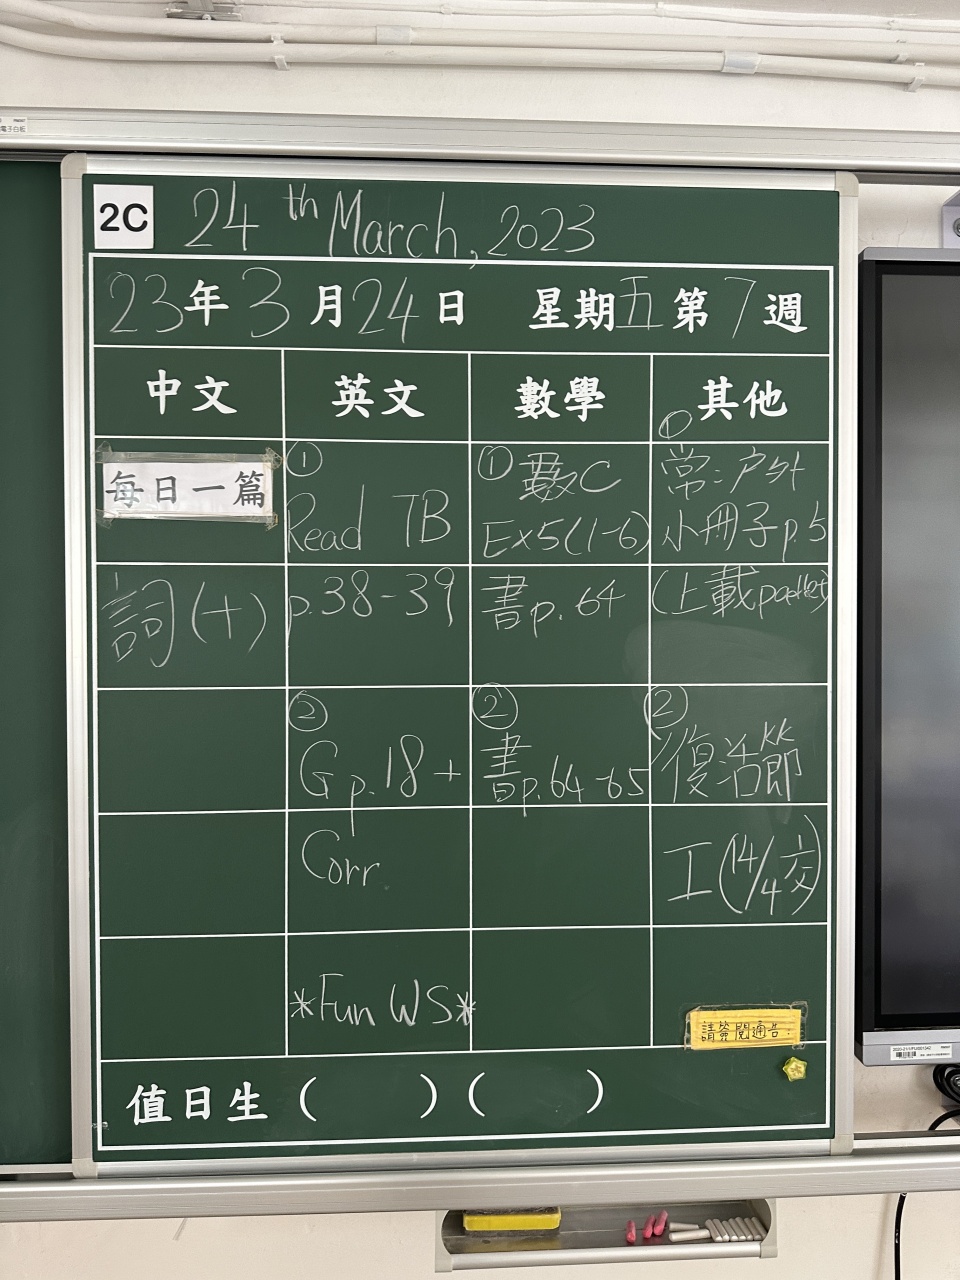 電子白板
2C 24th March, 2023
23年3月24日 星期五第7週
中文 英文 數學 其他
每日一篇
詞(十)
①
Read TB
p.38-39
②
G p.18 +
Corr.
*Fun WS*
① 數C
Ex5(1-6)
書p.64
②
書p.64-65
①
常:户外
小冊子p.5
(上載padlet)
②
復活節
工(14/4交)
請簽閱通告:
值日生( )( )